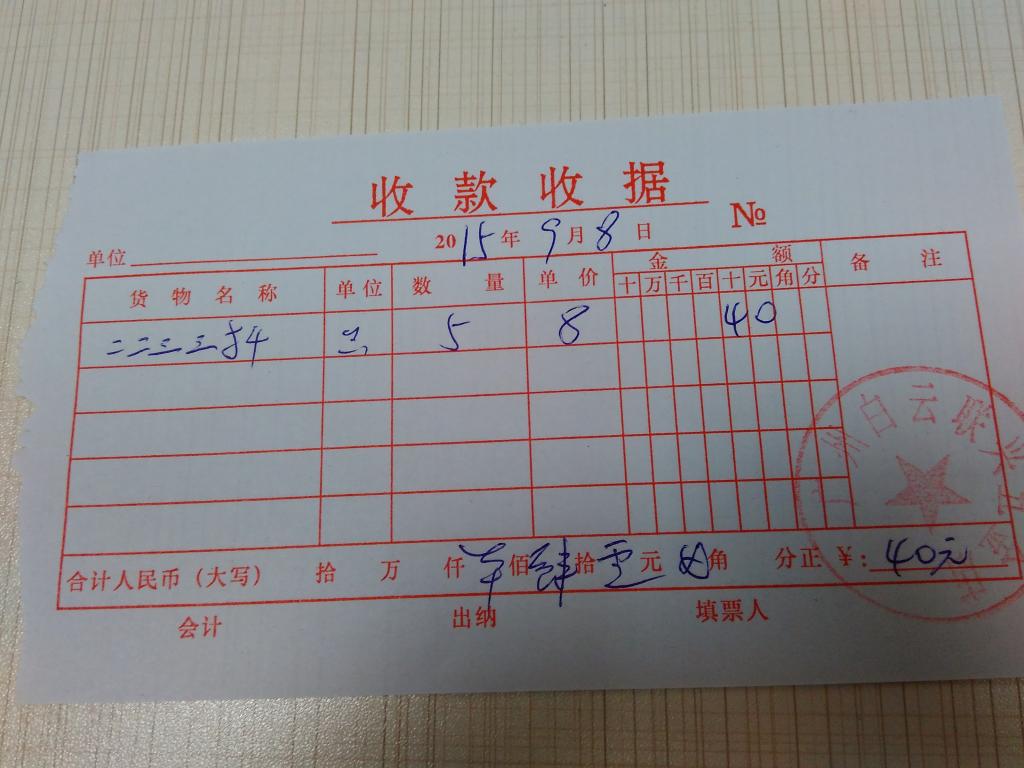 收款收据
单位 2015年9月8日 №
货物名称 单位 数量 单价 金额 备注
十万千百十元角分
5 8 40
合计人民币（大写） 拾 万 仟 佰肆拾零元 角 分正 ￥：40元
会计 出纳 填票人
州白云联兴